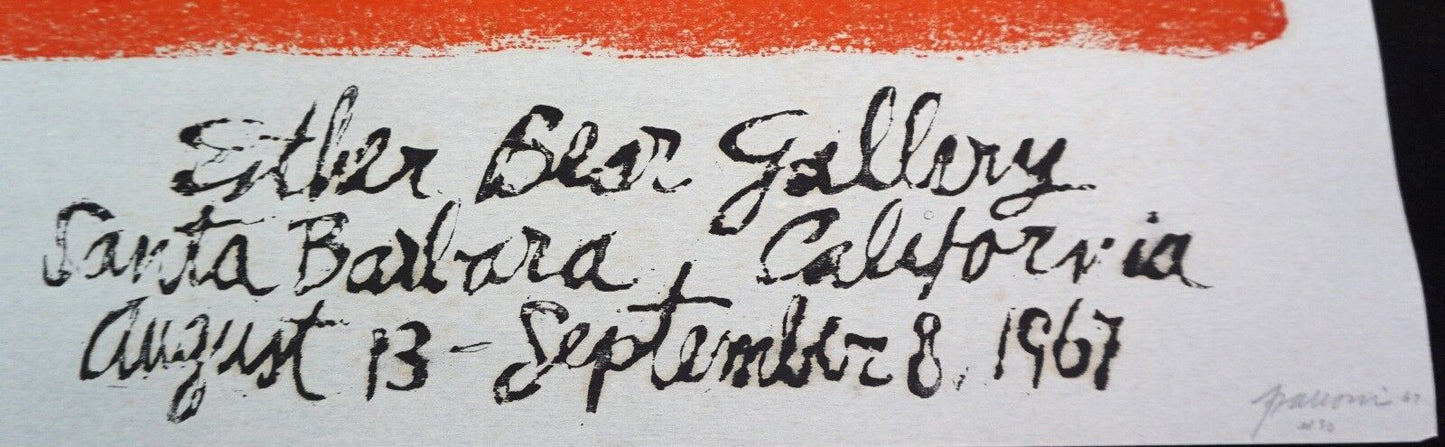 Esther Bear Gallery
Santa Barbara, California
August 13 - September 8, 1967
67